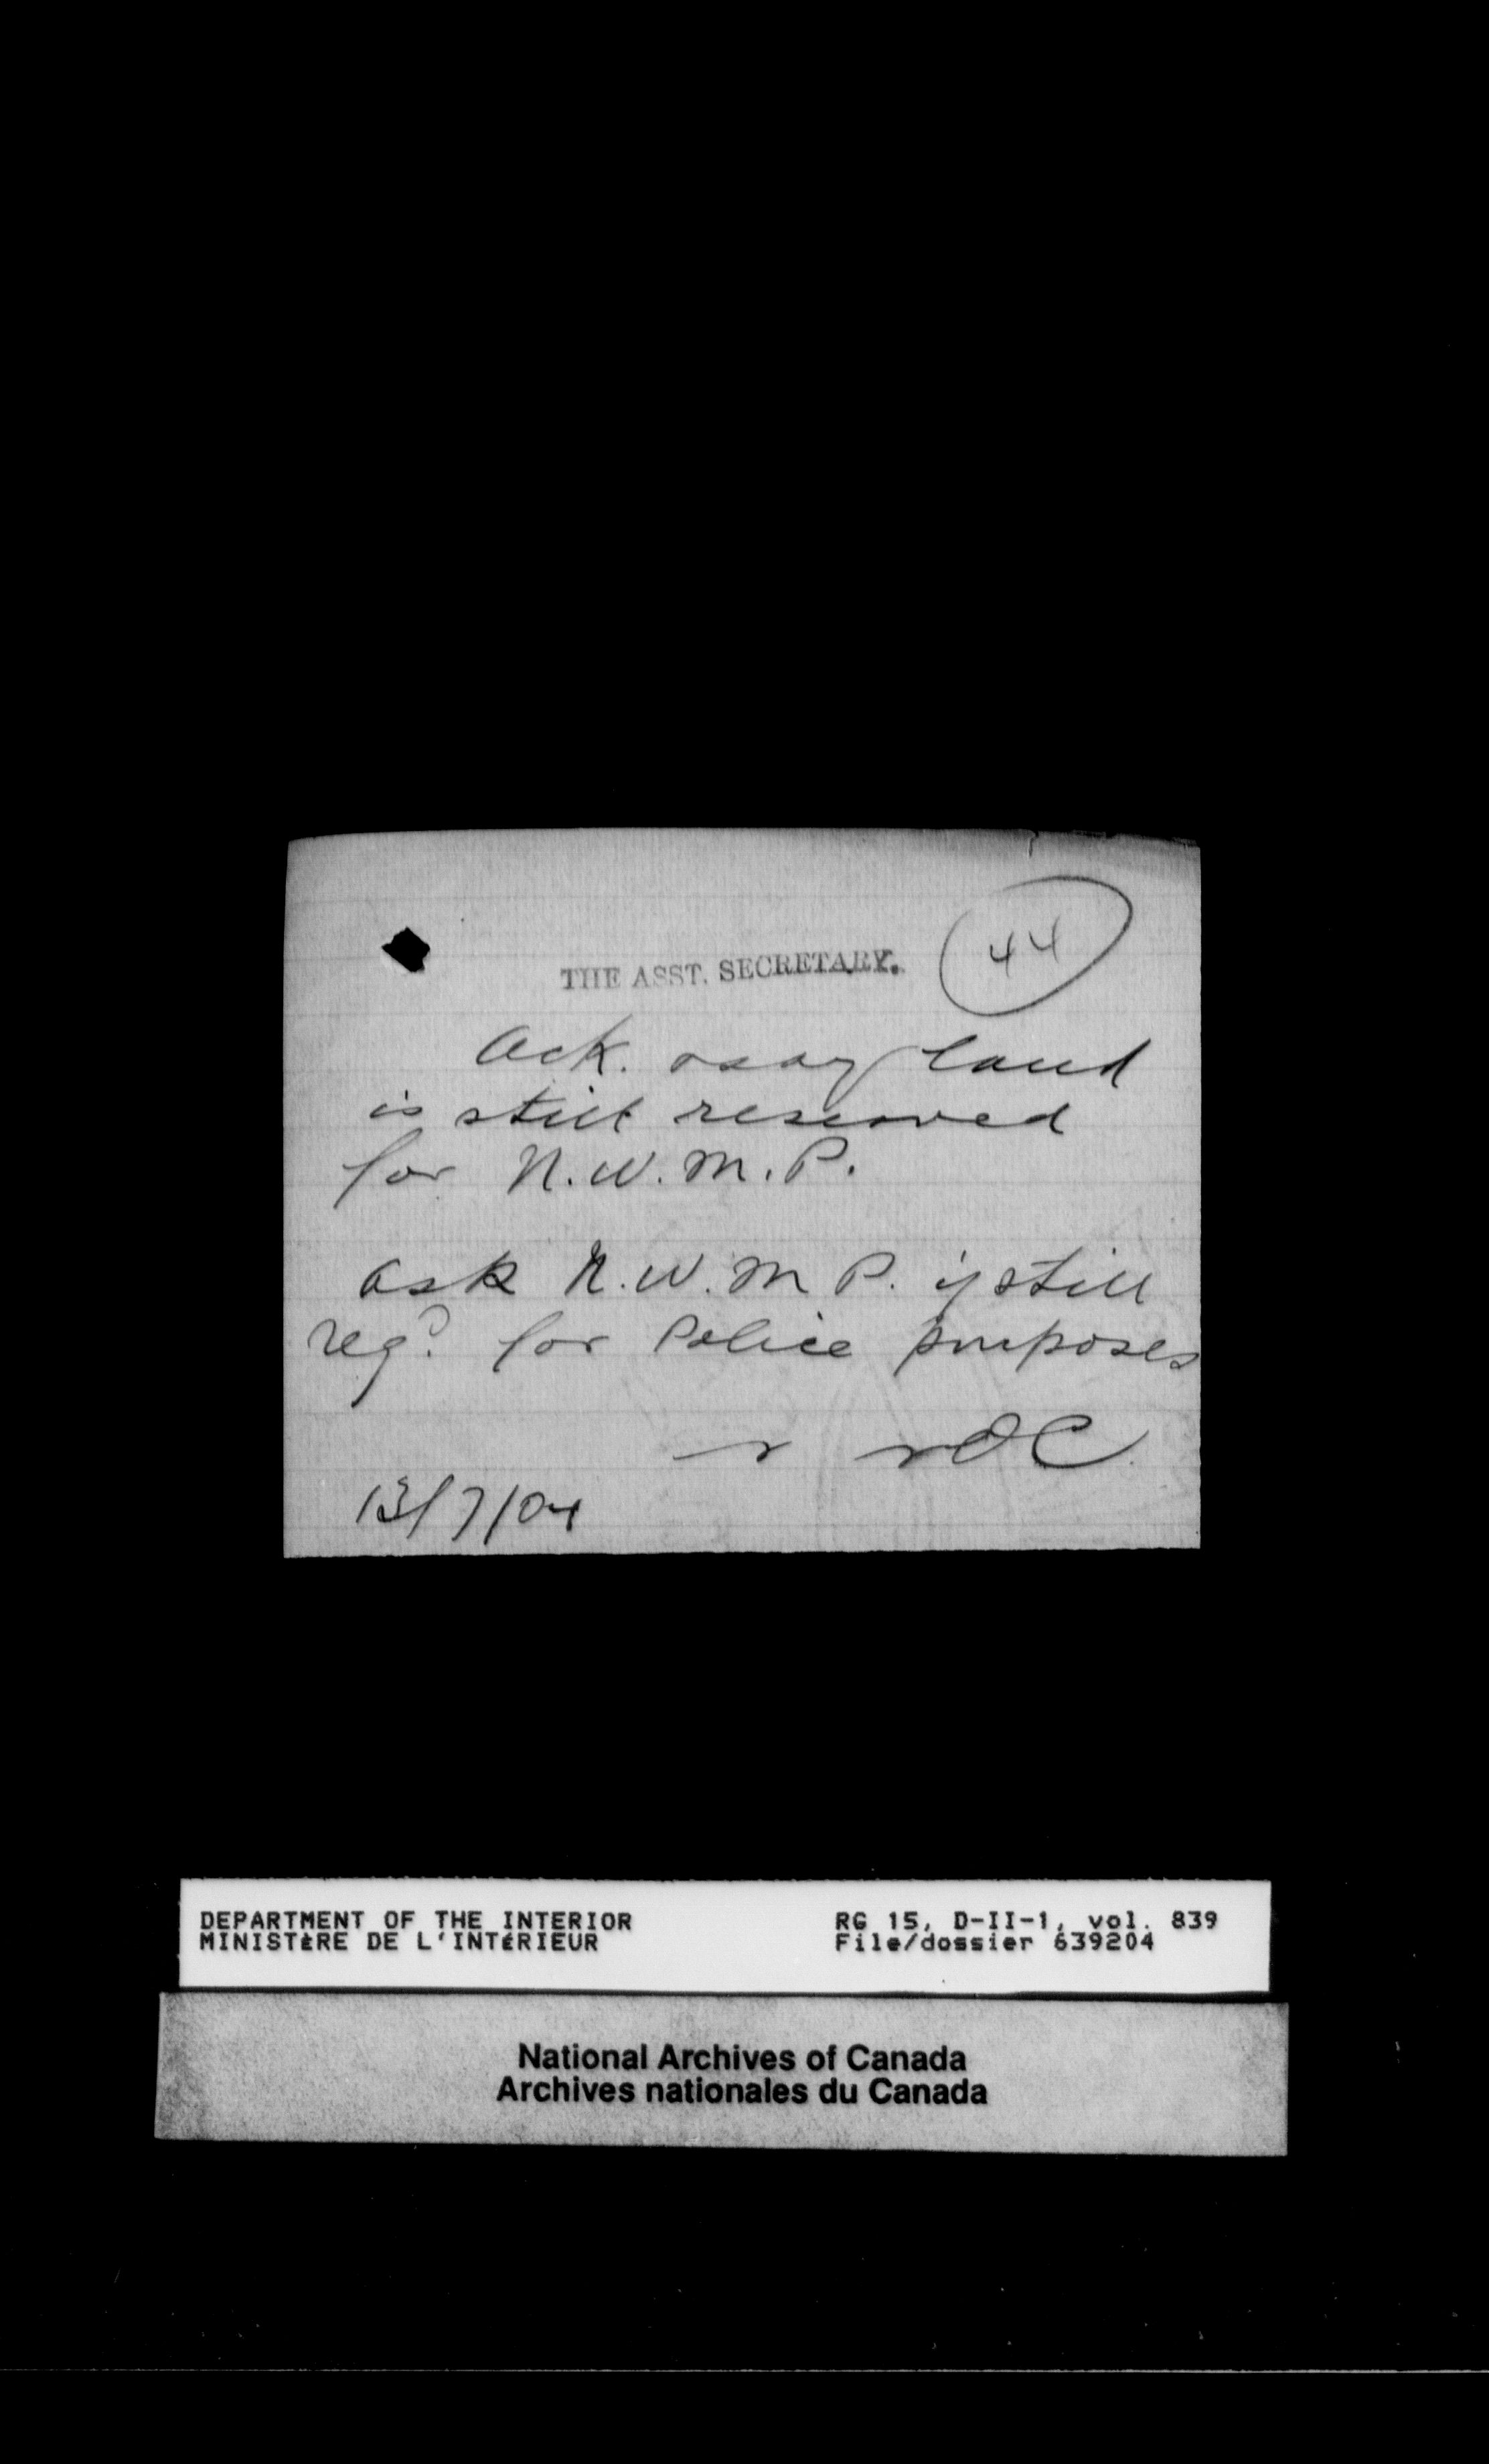 44
THE ASST. SECRETARY.
Ack. & say land
is still reserved
for N.W.M.P.
Ask N.W.M.P. if still
reqd. for Police purposes
13/7/04
DEPARTMENT OF THE INTERIOR
MINISTÈRE DE L'INTÉRIEUR
RG 15, D-II-1, vol. 839
File/dossier 639204
National Archives of Canada
Archives nationales du Canada